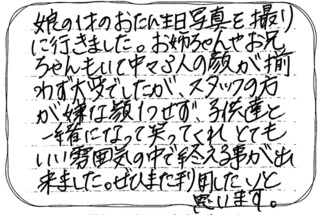 娘の1才のおたん生日写真を撮り
に行きました。お姉ちゃんやお兄
ちゃんもいて中々3人の顔が揃
わず大変でしたが、スタッフの方
が嫌な顔1つせず、子供達と
一緒になって笑ってくれ とても
いい雰囲気の中で終える事が出
来ました。ぜひまた利用したいと
思います。